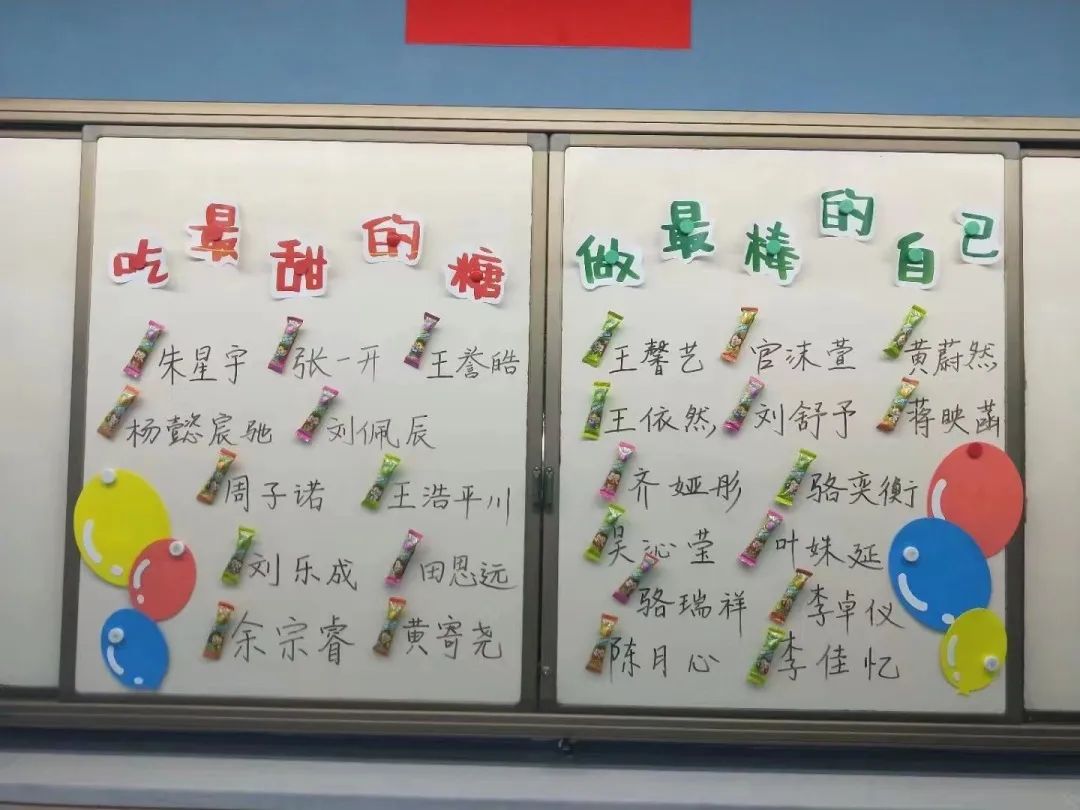 吃最甜的糖
朱星宇 张一开 王誉皓
杨懿宸驰 刘佩辰
周子诺 王浩平川
刘乐成 田思远
余宗睿 黄寄尧
做最棒的自己
王馨艺 官沫萱 黄蔚然
王依然 刘舒予 蒋映菡
齐娅彤 骆奕衡
吴沁莹 叶姝延
骆瑞祥 李卓仪
陈月心 李佳忆